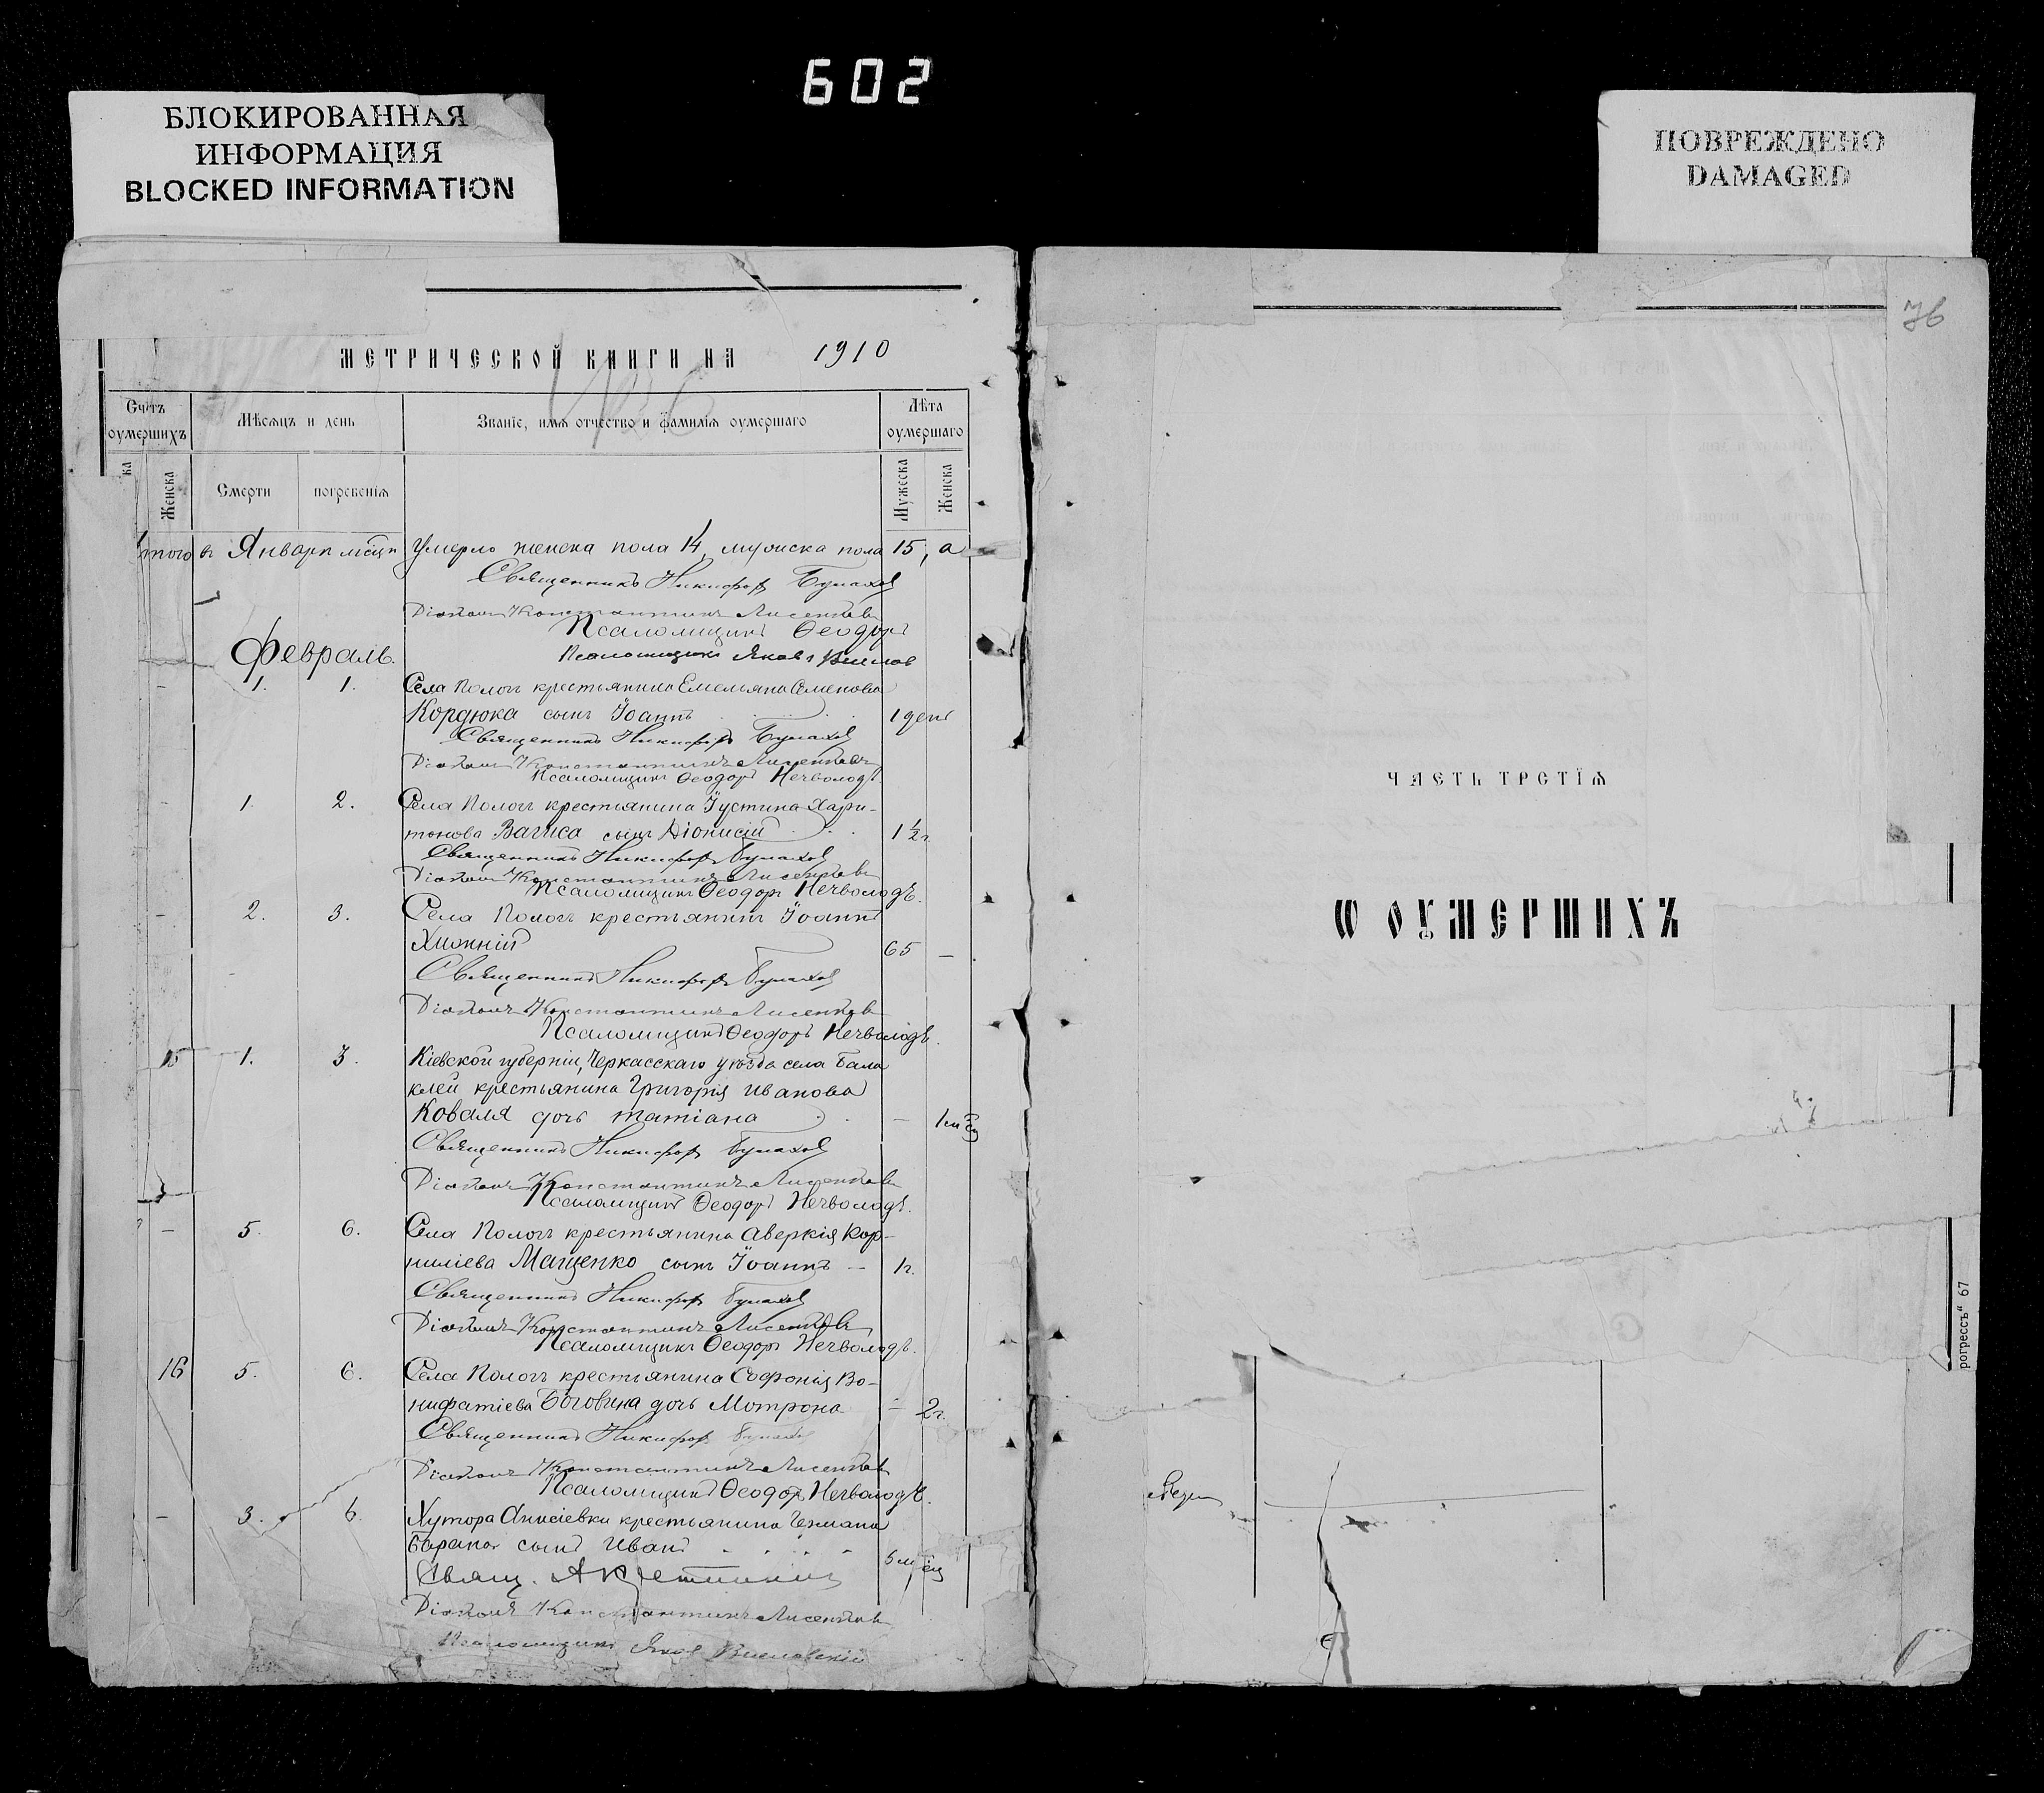 602
БЛОКИРОВАННАЯ
ИНФОРМАЦИЯ
BLOCKED INFORMATION
ПОВРЕЖДЕНО
DAMAGED
76
МЕТРИЧЕСКОЙ КНИГИ НА 1910
Счетъ оумершихъ
Мѣсяцъ и день
Званіе, имя отчество и фамилія оумершаго
Лѣта оумершаго
ка
Женска
Смерти
погребенія
Мужеска
Женска
итого въ Январѣ мѣсяцѣ Умерло женска пола 14, мужска пола 15, а
Священникъ Никифоръ Булахов
Діаконъ Константинъ Лисенков
Псаломщикъ Ѳеодоръ
Псаломщикъ Яковъ
Февраль.
- 1. 1. Села Пологъ крестьянина Емельяна Семенова
Кордюка сынъ Іоаннъ 1 день
Священникъ Никифоръ Булахов
Діаконъ Константинъ Лисенков
Псаломщикъ Ѳеодоръ Нечволодъ.
- 1. 2. Села Пологъ крестьянина Іустина Хари-
тонова сынъ Діонисій 1 ½ г.
Священникъ Никифоръ Булахов
Діаконъ Константинъ Лисенков
Псаломщикъ Ѳеодоръ Нечволодъ.
- 2. 3. Села Пологъ крестьянинъ Іоаннъ
Хижній 65 -
Священникъ Никифоръ Булахов
Діаконъ Константинъ Лисенков
Псаломщикъ Ѳеодоръ Нечволодъ.
15 1. 3. Кіевской губерніи, Черкасскаго уѣзда села Бала
клеи крестьянина Григорія Иванова
Коваля дочь Татіана - 1 мѣсяц
Священникъ Никифоръ Булахов
Діаконъ Константинъ Лисенков
Псаломщикъ Ѳеодоръ Нечволодъ.
- 5. 6. Села Пологъ крестьянина Аверкія Кор-
ниліева Маценко сынъ Іоаннъ - 1 г.
Священникъ Никифоръ Булахов
Діаконъ Константинъ Лисенков
Псаломщикъ Ѳеодоръ Нечволодъ.
16 5. 6. Села Пологъ крестьянина Софонія Во-
нифатіева Боговина дочь Мотрона - 2 г.
Священникъ Никифоръ
Діаконъ Константинъ Лисенков
Псаломщикъ Ѳеодоръ Нечволодъ.
- 3. 6. Хутора крестьянина
сынъ Иванъ 5 мѣсяц
Свящ.
Діаконъ Константинъ Лисенков
Псаломщикъ Яковъ
ЧАСТЬ ТРЕТІЯ
Ѡ ОУМЕРШИХЪ
рогрессъ“ 67